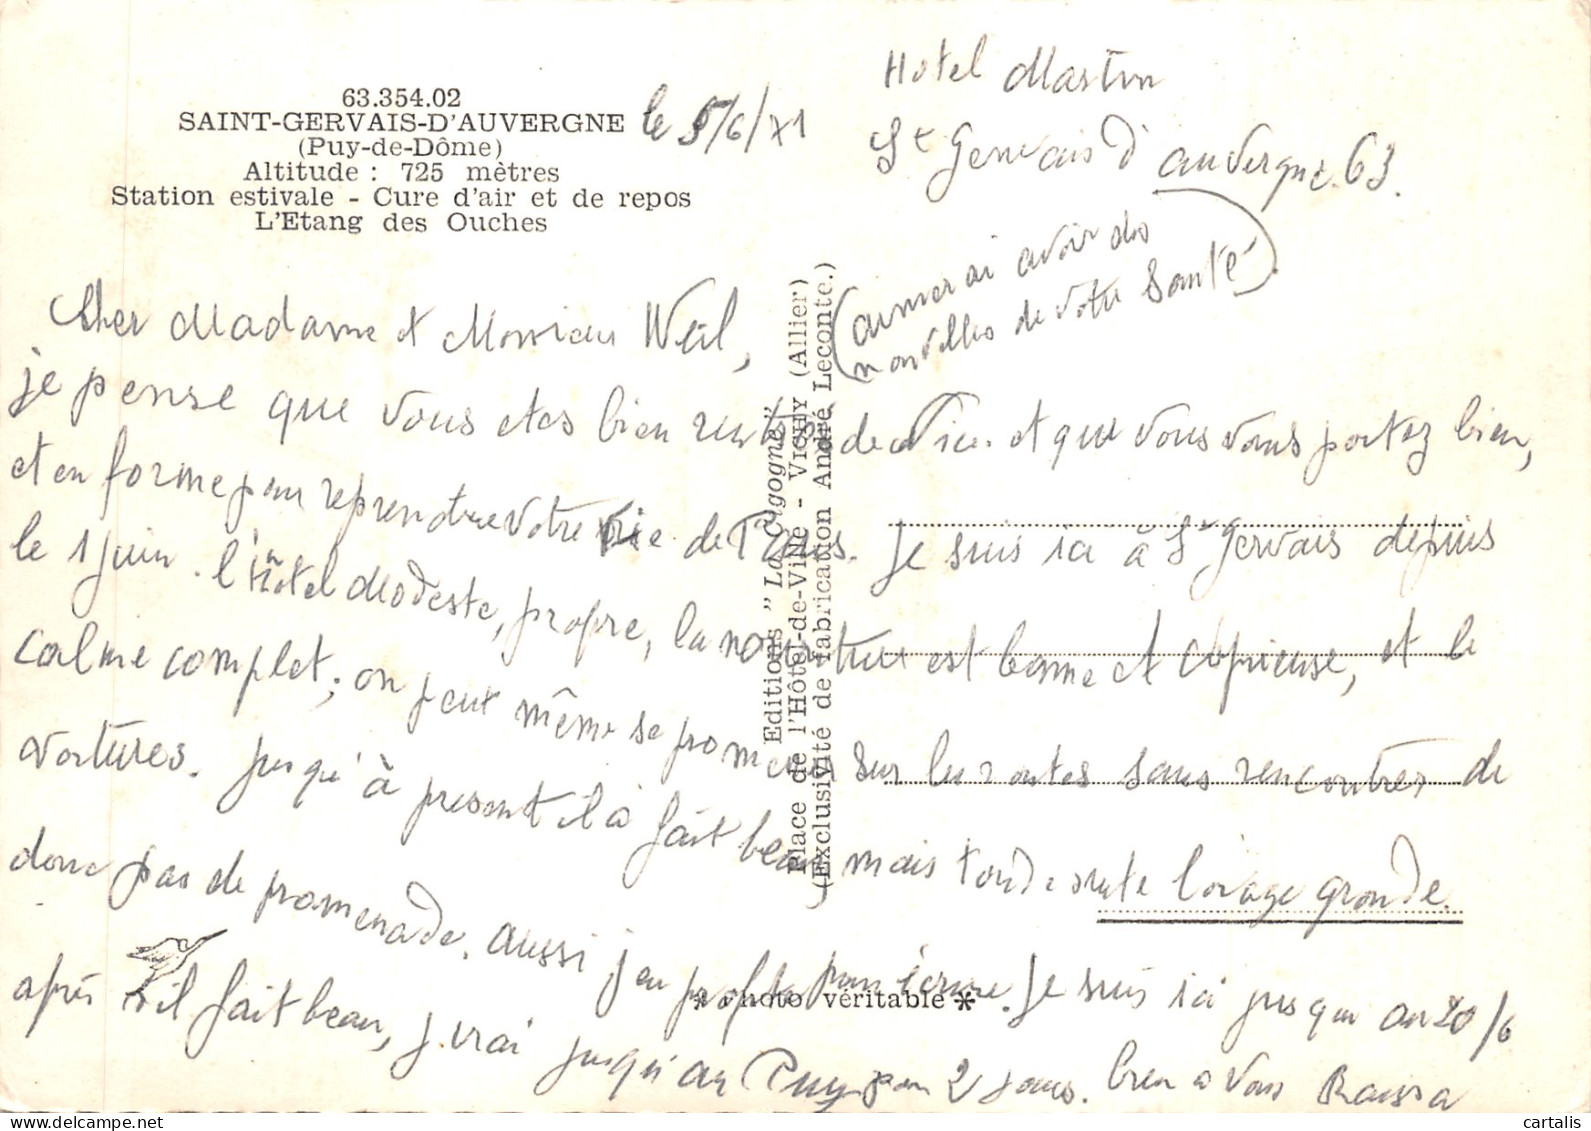 63.354.02
SAINT-GERVAIS-D'AUVERGNE
(Puy-de-Dôme)
Altitude : 725 mètres
Station estivale - Cure d'air et de repos
L'Etang des Ouches
le 5/6/71
Hotel Martin
St Gervais d'auvergne. 63.
(aimerai avoir des
nouvelles de votre santé).
Cher Madame et Monsieur Weil,
je pense que vous etes bien rentrés de Nice et que vous vous portez bien,
et en forme pour reprendre votre vie de Paris. Je suis ici à St Gervais depuis
le 1 juin. l'Hotel Modeste, propre, la nourriture est bonne et copieuse, et le
calme complet; on peut même se promener sur les routes sans rencontrer de
voitures. jusqu'à present il à fait beau mais l'orage gronde.
donc pas de promenade. aussi j'en profite pour écrire. Je suis ici jusqu'au 20/6
après s'il fait beau, j'irai jusqu'au Puy pour 2 jours. bien a vous Raissa
Editions "La Cigogne"
Place de l'Hôtel-de-Ville - VICHY (Allier)
(Exclusivité de fabrication André Leconte.)
* Photo véritable *
cartalis